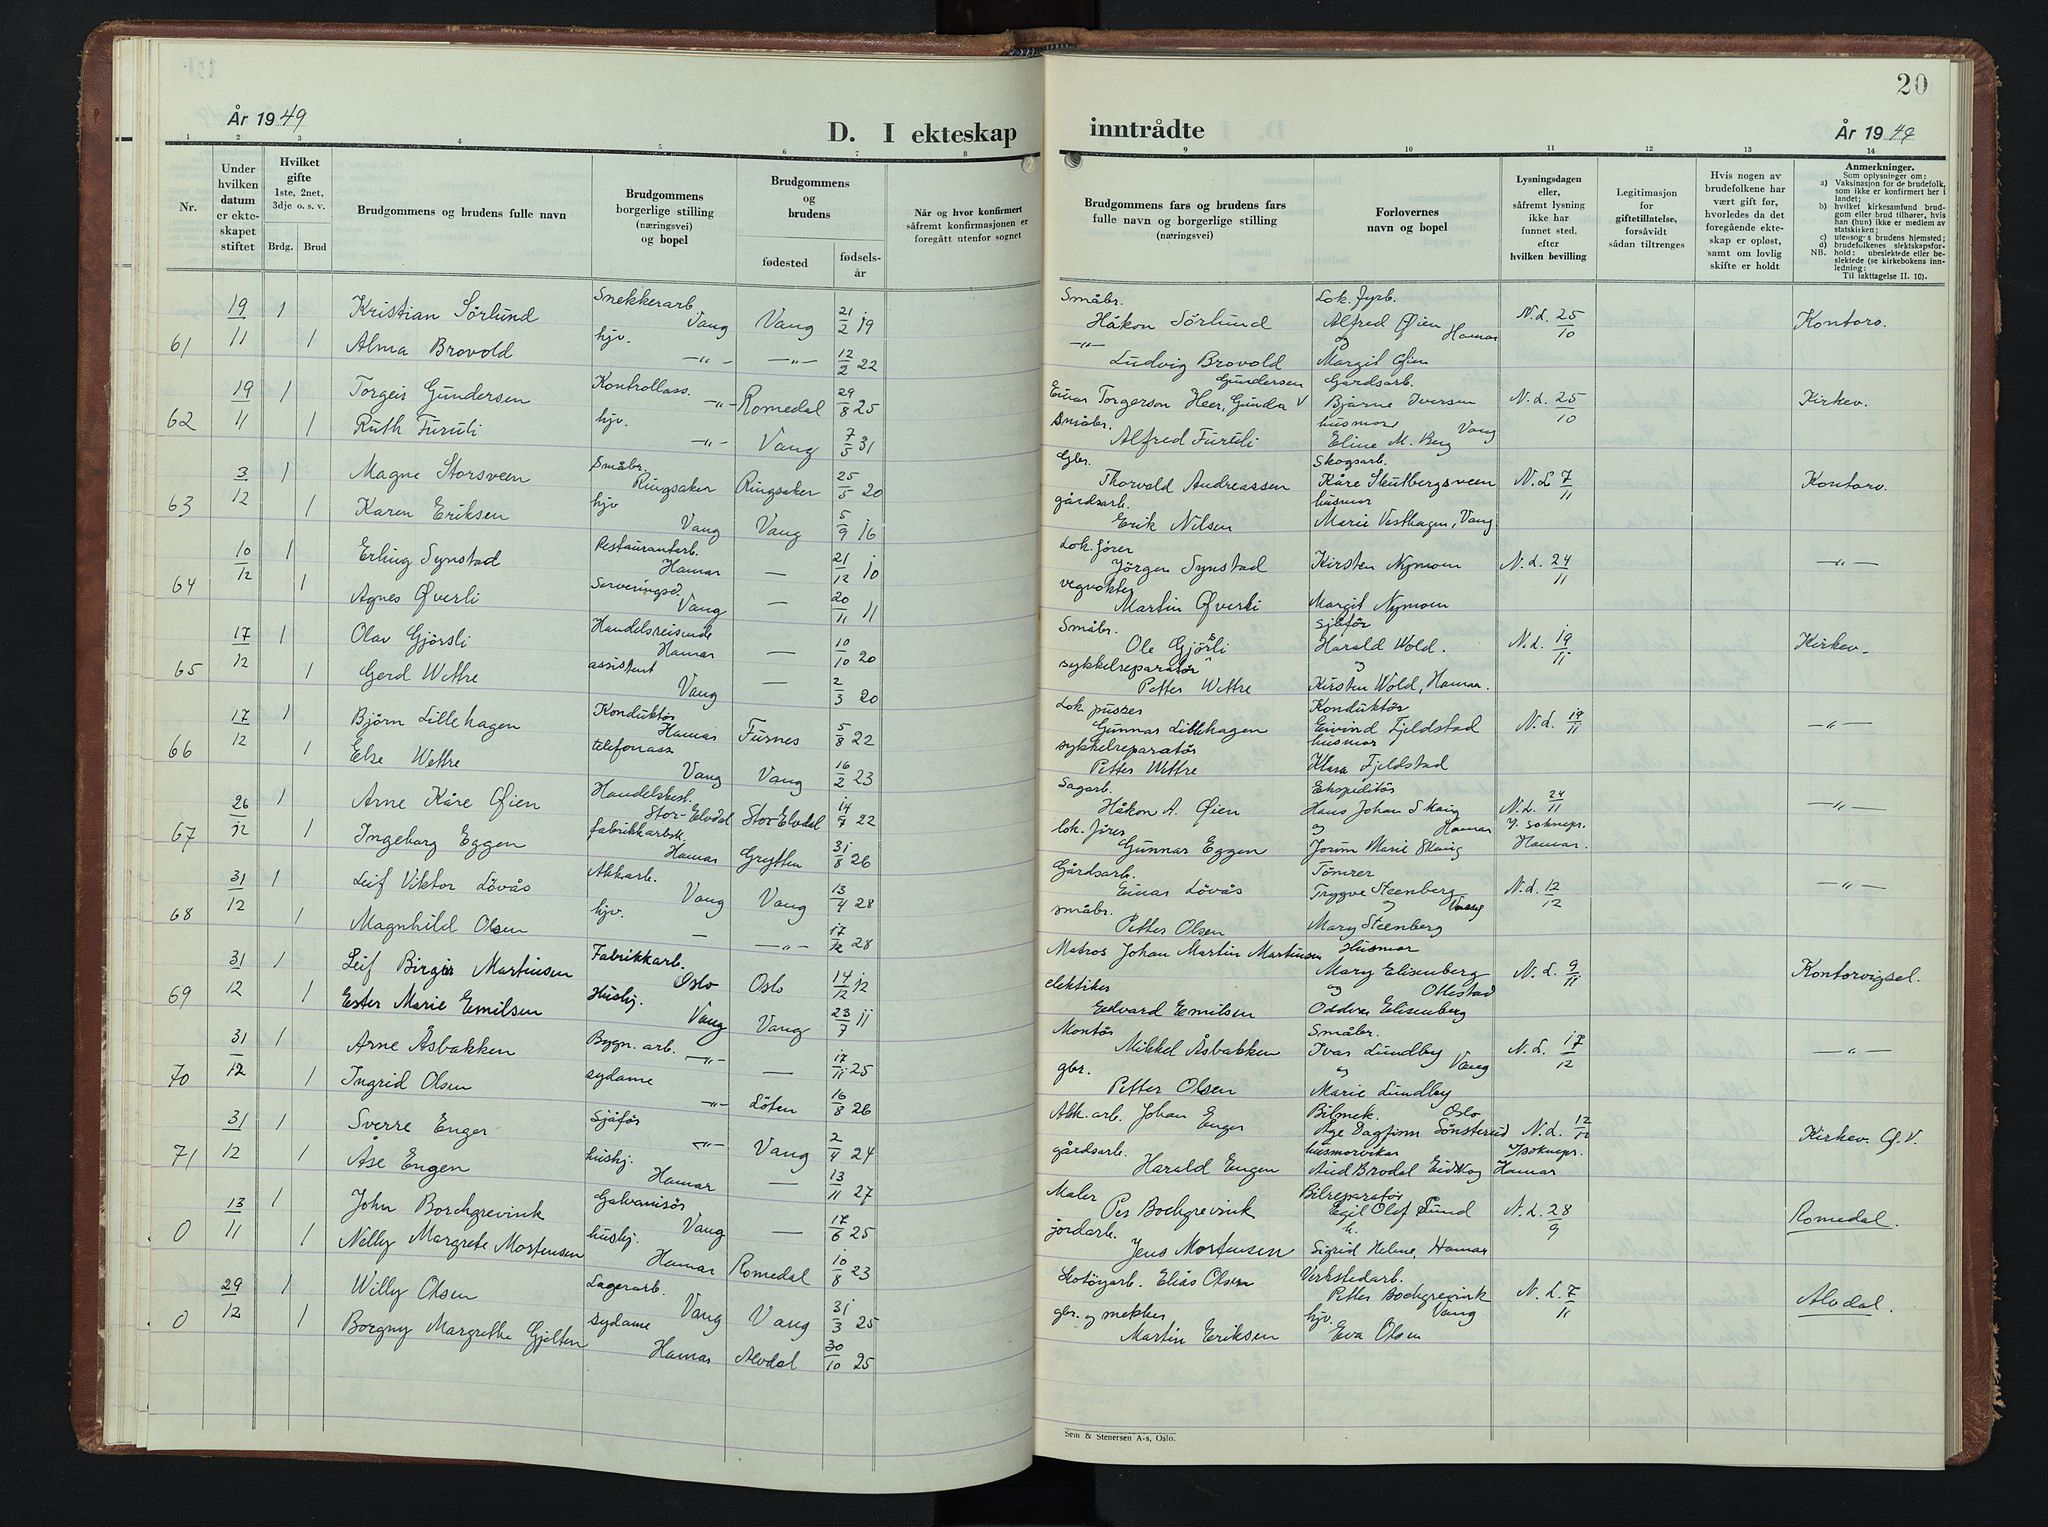 År 1949
D. I ekteskap
1 2 3 4 5 6 7 8
Nr.
Under hvilken datum er ekteskapet stiftet
Hvilket gifte 1ste, 2net. 3dje o. s. v.
Brdg. Brud
Brudgommens og brudens fulle navn
Brudgommens borgerlige stilling (næringsvei) og bopel
Brudgommens og brudens
fødested fødsels-år
Når og hvor konfirmert såfremt konfirmasjonen er foregått utenfor sognet
19/11 1 Kristian Sörlund Snekkerarb. Vang Vang 21/2 19
61 1 Alma Brovold hjv. —"— —"— 12/2 22
19/11 1 Torgeir Gundersen Kontrollass. —"— Romedal 29/8 25
62 1 Ruth Furuli hjv. —"— Vang 7/5 31
3/12 1 Magne Storsveen Småbr. Ringsaker Ringsaker 25/5 20
63 1 Karen Eriksen hjv Vang Vang 5/9 16
10/12 1 Erling Synstad Restaurantarb. Hamar — 21/12 10
64 1 Agnes Øverli Serveringsd. Vang — 20/11 11
17/12 1 Olav Gjörsli Handelsreisende Hamar — 10/10 20
65 1 Gerd Wettre assistent Vang — 2/3 20
17/12 1 Björn Lillehagen Konduktør Hamar Furnes 5/8 22
66 1 Else Wettre telefonass Vang Vang 16/2 23
26/12 1 Arne Kåre Øien Handelsbest. Stor-Elvdal Stor-Elvdal 14/7 22
67 1 Ingeborg Eggen fabrikkarb. Hamar Grytten 31/8 26
31/12 1 Leif Viktor Lövås Akkarb. Vang Vang 13/4 28
68 1 Magnhild Olsen hjv. — —"— 17/12 28
31/12 1 Leif Birger Martinsen Fabrikkarb. Oslo Oslo 14/12 12
69 1 Ester Marie Emilsen Hushj. Vang Vang 23/7 11
31/12 1 Arne Åsbakken Bygn. arb. —"— — 17/11 25
70 1 Ingrid Olsen sydame —"— Löten 16/8 26
31/12 1 Sverre Enger Sjåför —"— Vang 2/4 24
71 1 Åse Engen hushj. Hamar — 13/11 27
13/11 1 John Borchgrevink Galvanisör Vang — 17/6 25
0 1 Nelly Margrete Mortensen hushj. Hamar Romedal 10/8 23
29/12 1 Willy Olsen Lagerarb. Vang Vang 31/3 25
0 1 Borgny Margrethe Gjelten sydame Hamar Alvdal 30/10 25
20
inntrådte
År 1949
9 10 11 12 13 14
Brudgommens fars og brudens fars fulle navn og borgerlige stilling (næringsvei)
Forlovernes navn og bopel
Lysningsdagen eller, såfremt lysning ikke har funnet sted, efter hvilken bevilling
Legitimasjon for giftetillatelse, forsåvidt sådan tiltrenges
Hvis nogen av brudefolkene har vært gift før, hvorledes da det foregående ekteskap er opløst, samt om lovlig skifte er holdt
Anmerkninger.
Som oplysninger om:
a) Vaksinasjon for de brudefolk, som ikke er konfirmert her i landet;
b) hvilket kirkesamfund brudgom eller brud tilhører, hvis han (hun) ikke er medlem av statskirken;
c) utensogns brudens hjemsted;
d) brudefolkenes slektskapsforhold: ubeslektede eller beslektede (se kirkebokens innledning:
NB. Til iakttagelse II. 10).
Småbr. Håkon Sörlund Lok. fyrb. Alfred Øien Hamar N. L. 25/10 Kontorv.
—"— Ludvig Brovold og Margit Øien
Einar Torgerson Heer, Gunda Gundersen Gårdsarb. Bjarne Iversen N. L. 25/10 Kirkev.
Småbr. Alfred Furuli husmor Vang Eline M. Berg
Gbr. Thorvald Andreassen Skogsarb. Kåre Slutbergsveen N. L 7/11 Kontorv.
gårdsarb. Erik Nilsen husmor Marie Vesthagen, Vang
Lok. fører Jörgen Synstad Kirsten Nymoen N. L. 24/11 —"—
vegvokter Martin Øverli Margit Nymoen
Småbr. Ole Gjörsli Sjåför Harald Wold. N. L. 19/11 Kirkev.
sykkelreparatör Petter Wettre og Kirsten Wold, Hamar.
Lok. pusser Gunnar Lillehagen Konduktör Eivind Fjeldstad N. L. 19/11 —"—
sykkelreparatör Petter Wettre husmor Klara Fjeldstad
Sagarb. Håkon A. Øien Ekspeditör Hans Johan Skaug N. L. 24/11 —"—
lok. förer Gunnar Eggen og Hamar Jorun Marie Skaug V/ soknepr. Hamar.
Gårdsarb. Einar Lövås Tömrer Trygve Steenberg N. L. 12/12 —"—
småbr. Petter Olsen og Vang Mary Steenberg
Matros Johan Martin Martinsen Husmor Mary Elisenberg N. L. 9/11 Kontorvigsel.
elektiker Edvard Emilsen og Ottestad Oddvar Elisenberg
Montör Mikkel Åsbakken Småbr. Ivar Lundby N. L. 17/12 —"—
gbr. Petter Olsen og Vang Marie Lundby
Akk. arb. Johan Enger Bilmek. Oslo Åge Dagfinn Sönsterud N. L. 12/12 Kirkev. Ø. V.
gårdsarb. Harald Engen husmorvikar Aud Brodal Eidskog V/soknepr. Hamar
Maler Per Bochgrevink Bilreparatör Egil Olof Sund N. L. 28/9 Romedal.
jordarb. Jens Mortensen h. Sigrid Helene, Hamar
Skotöyarb. Elias Olsen Verkstedarb. Petter Bochgrevink N. L. 7/11 Alvdal.
gbr. og mekker Martin Eriksen hjv. Vang Eva Olsen
Sem & Stenersen A-s, Oslo.